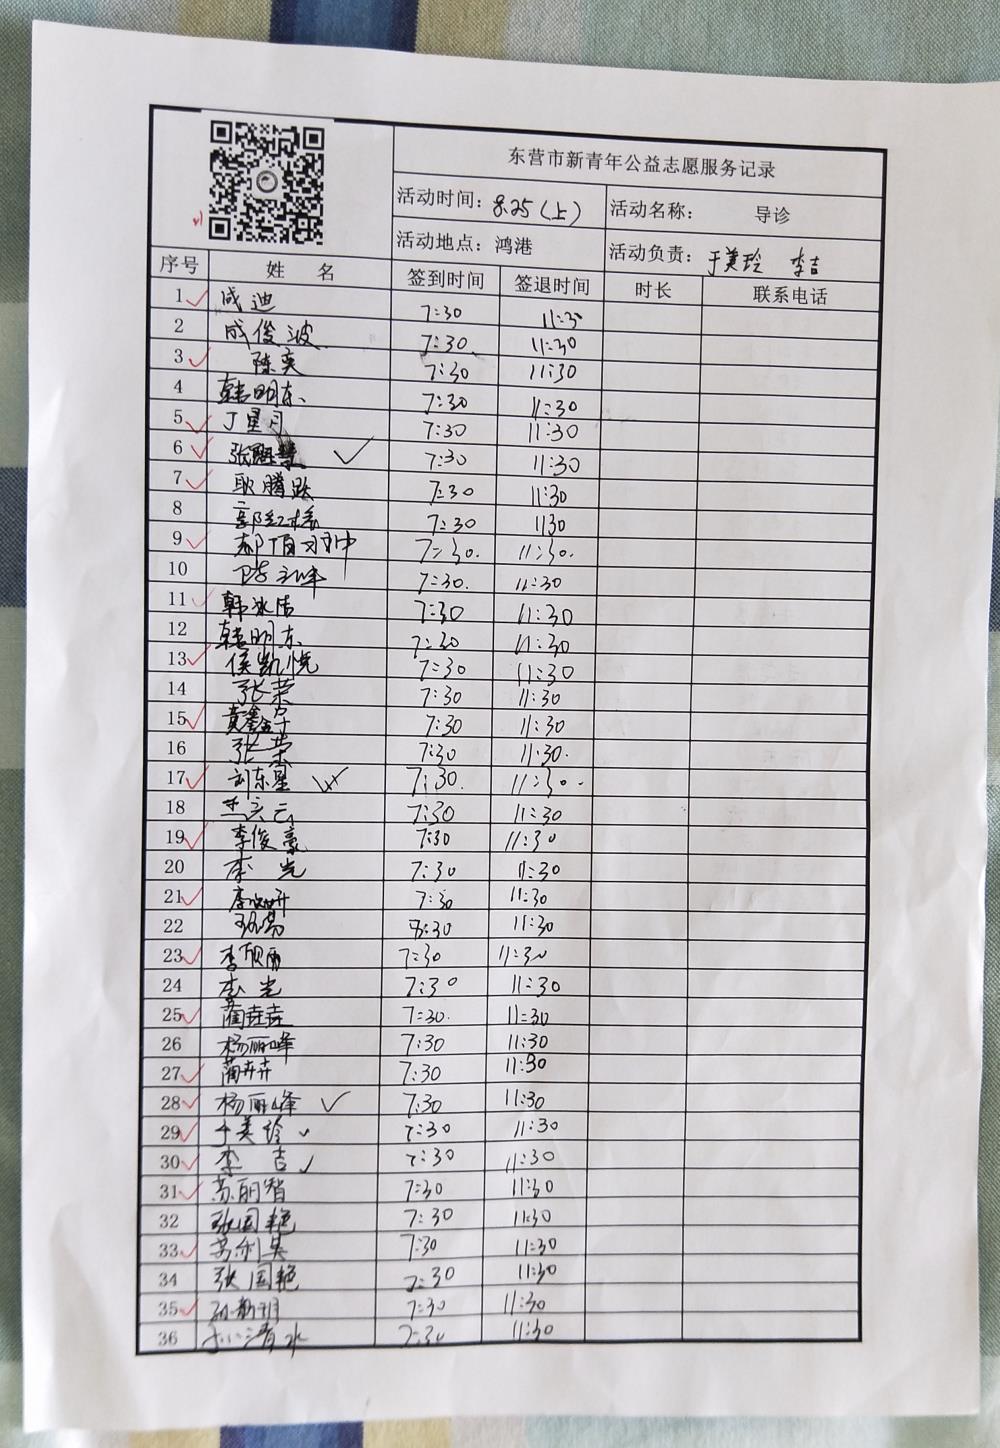 东营市新青年公益志愿服务记录
活动时间：8.25（上） 活动名称： 导诊
活动地点：鸿港 活动负责：于美玲 李吉
序号 姓 名 签到时间 签退时间 时长 联系电话
1 成迪 7:30 11:30
2 成俊波 7:30 11:30
3 陈奕 7:30 11:30
4 韩明东 7:30 11:30
5 丁星月 7:30 11:30
6 张 7:30 11:30
7 耿腾跃 7:30 11:30
8 郭红梅 7:30 1130
9 郝 7:30. 11:30.
10 陈立峰 7:30. 11:30
11 韩冰洁 7:30 11:30
12 韩明东 7:30 11:30
13 侯凯悦 7:30 11:30
14 张荣 7:30 11:30
15 黄鑫 7:30 11:30
16 张荣 7:30 11:30.
17 刘东星 7:30. 11:30.
18 7:30 11:30
19 李俊豪 7:30 11:30
20 李光 7:30 11:30
21 李 7:30 11:30
22 8:30 11:30
23 李硕雨 7:30 11:30
24 李光 7:30 11:30
25 蔺垚垚 7:30. 11:30
26 杨丽峰 7:30 11:30
27 蔺卉卉 7:30 11:30
28 杨丽峰 7:30 11:30
29 于美玲 7:30 11:30
30 李吉 7:30 11:30
31 苏丽智 7:30 11:30
32 张国艳 7:30 11:30
33 苏利昊 7:30 11:30
34 张国艳 7:30 11:30
35 孙 7:30 11:30
36 清水 7:30 11:30